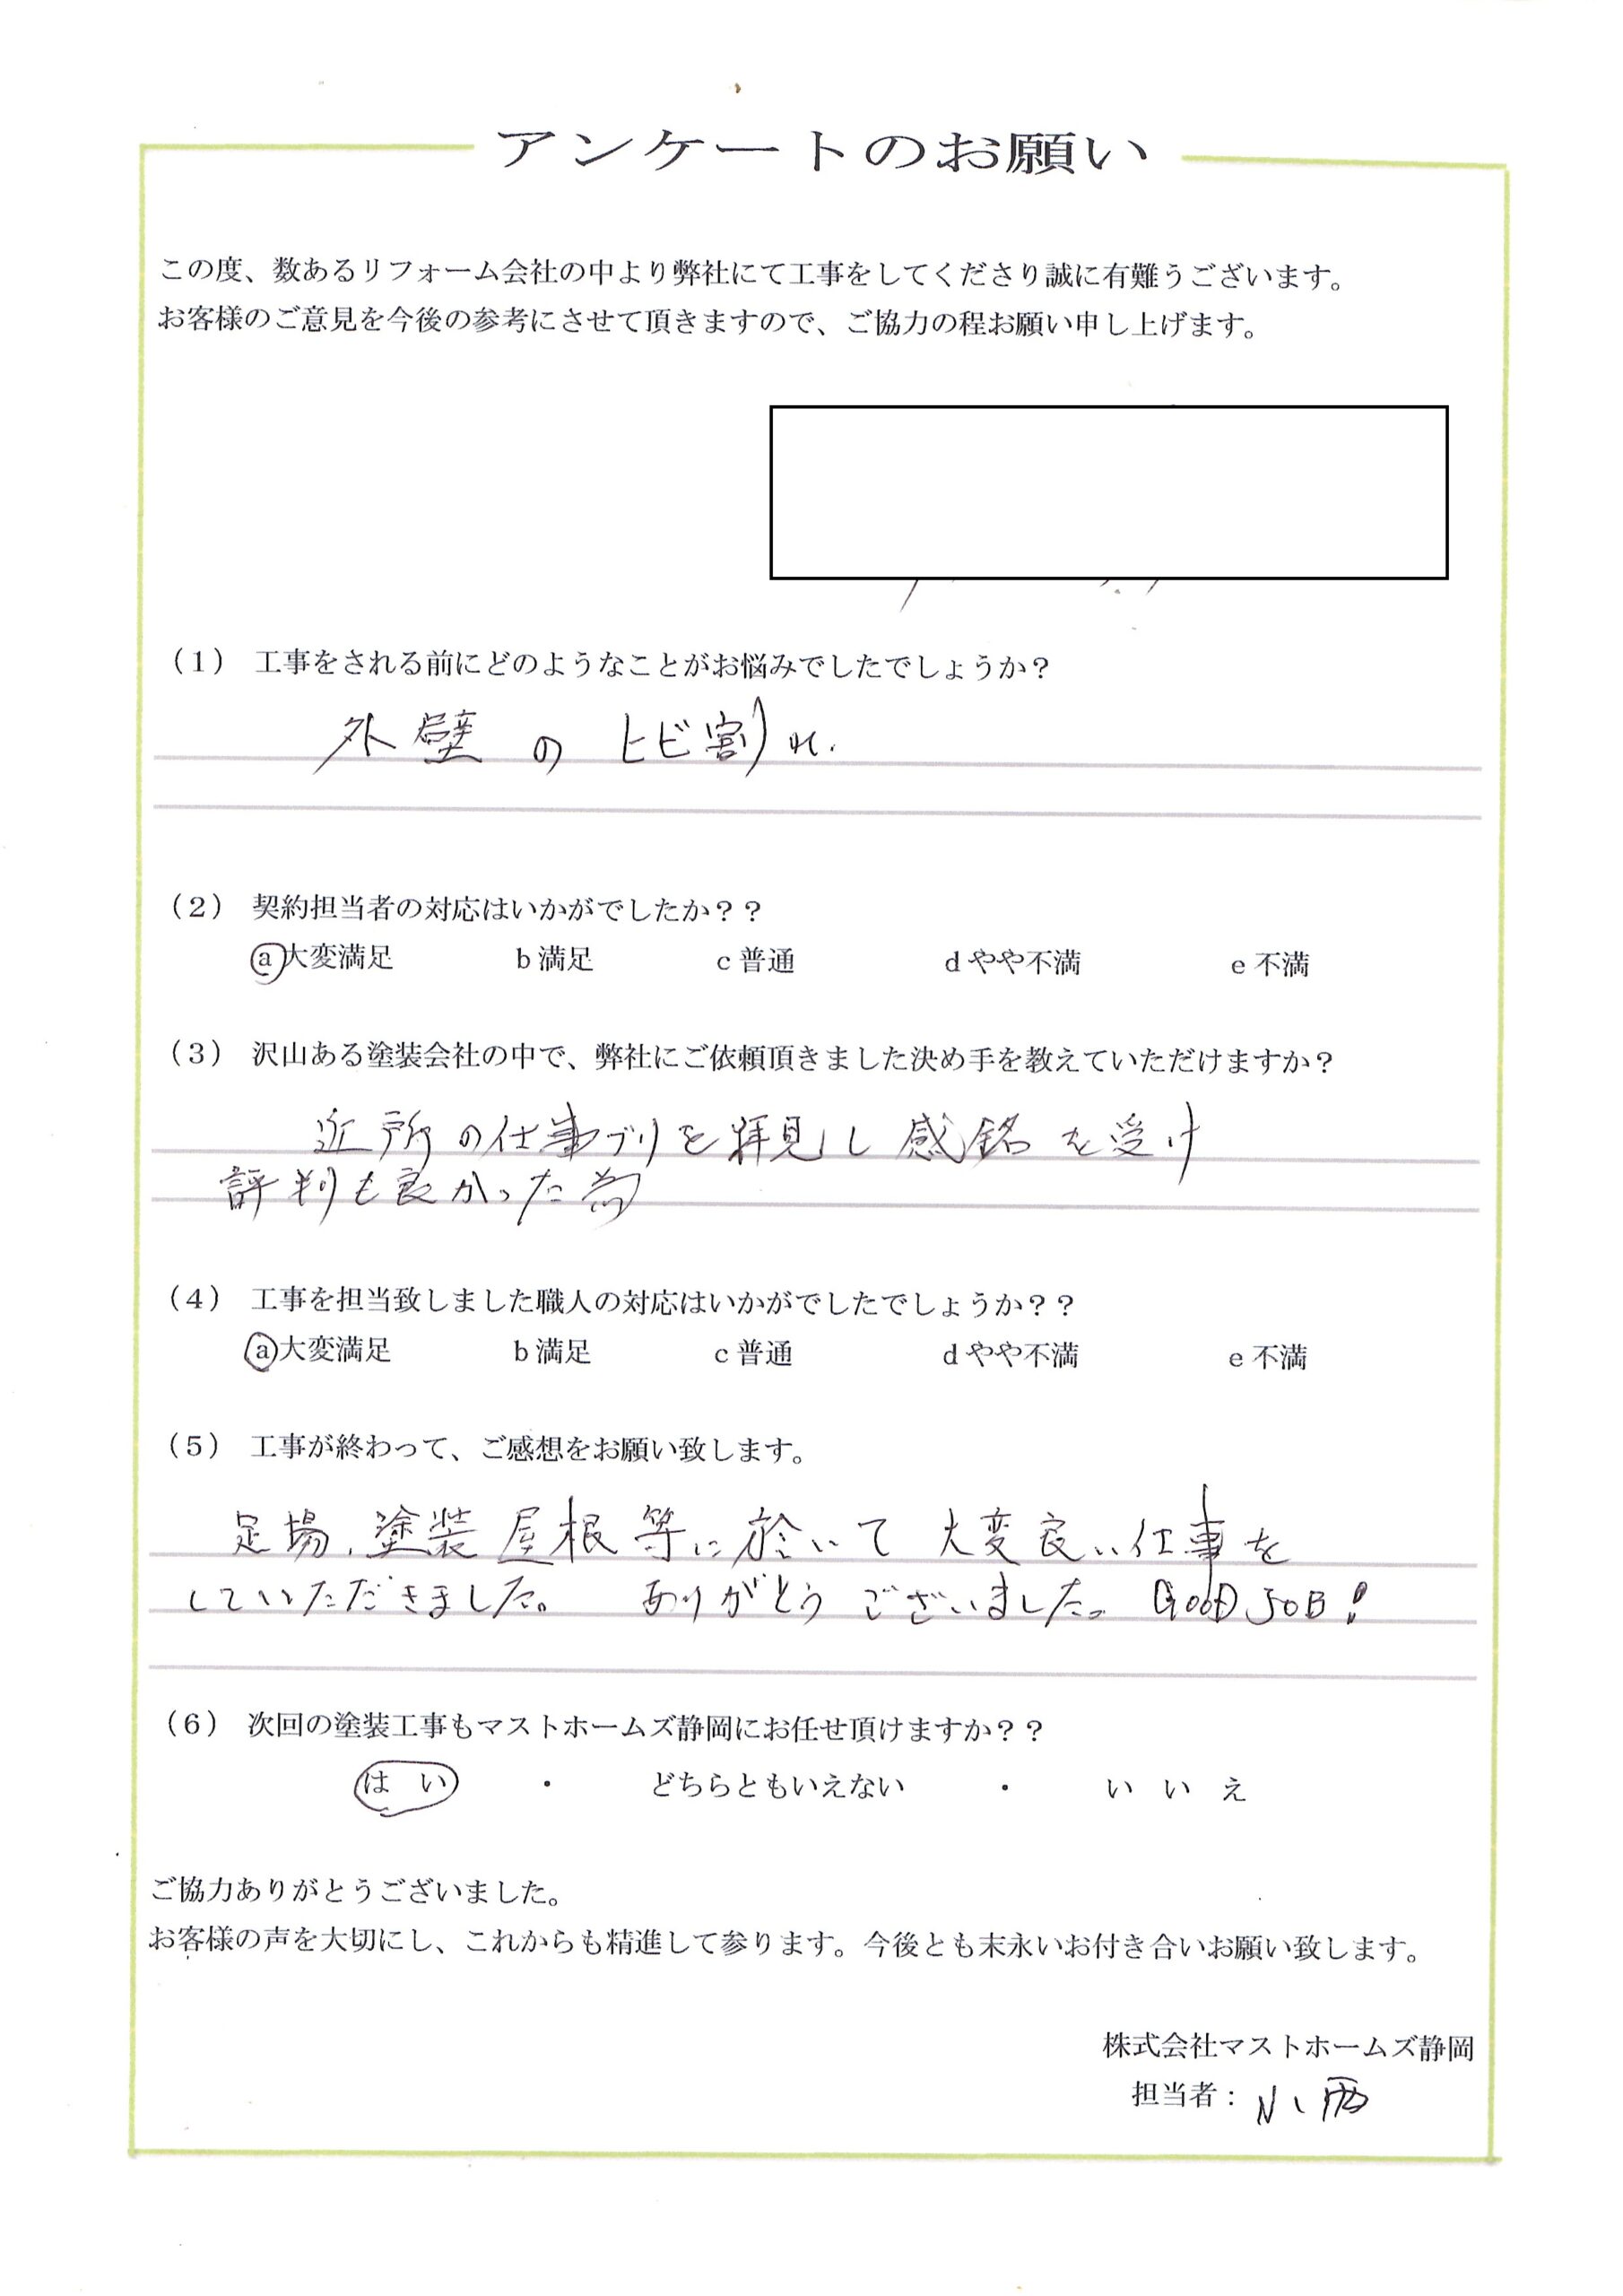 アンケートのお願い
この度、数あるリフォーム会社の中より弊社にて工事をしてくださり誠に有難うございます。
お客様のご意見を今後の参考にさせて頂きますので、ご協力の程お願い申し上げます。
（1） 工事をされる前にどのようなことがお悩みでしたでしょうか？
外壁のヒビ割れ.
（2） 契約担当者の対応はいかがでしたか？？
a 大変満足 b 満足 c 普通 d やや不満 e 不満
（3） 沢山ある塗装会社の中で、弊社にご依頼頂きました決め手を教えていただけますか？
近所の仕事ブリを拝見し感銘を受け
評判も良かった為
（4） 工事を担当致しました職人の対応はいかがでしたでしょうか？？
a 大変満足 b 満足 c 普通 d やや不満 e 不満
（5） 工事が終わって、ご感想をお願い致します。
足場、塗装屋根等に於いて 大変良い仕事を
していただきました。 ありがとうございました。 GOOD JOB!
（6） 次回の塗装工事もマストホームズ静岡にお任せ頂けますか？？
はい ・ どちらともいえない ・ いいえ
ご協力ありがとうございました。
お客様の声を大切にし、これからも精進して参ります。今後とも末永いお付き合いお願い致します。
株式会社マストホームズ静岡
担当者：小西